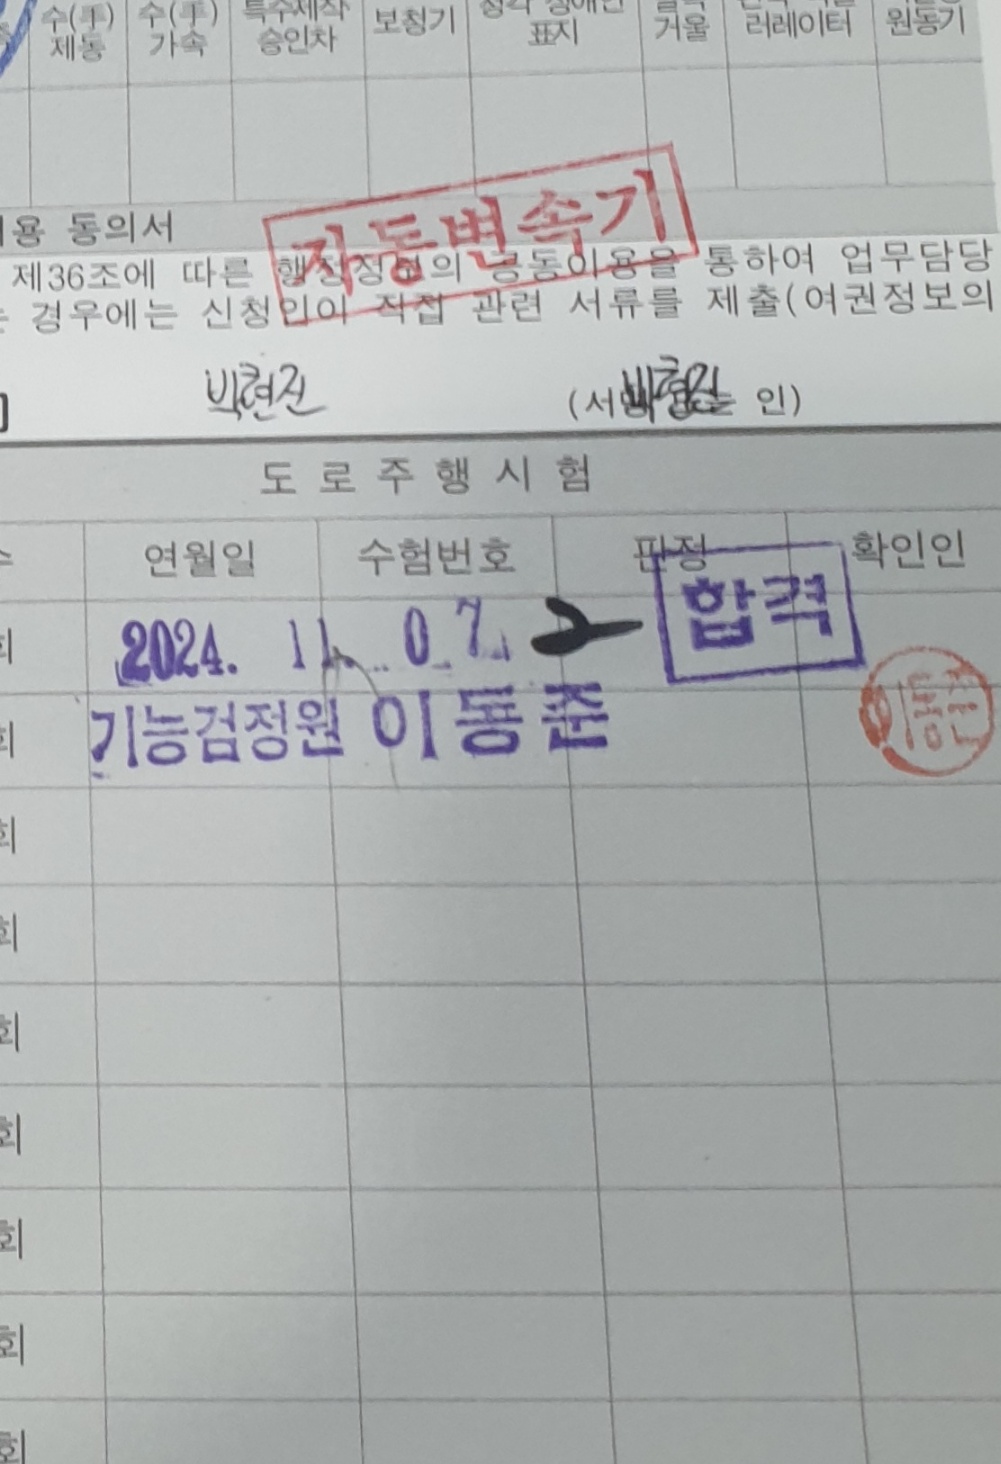 수(手) 수(手) 특수제작 보청기 청각 장애인 거울 러레이터 원동기
제동 가속 승인차 표지
자동변속기
용 동의서
제36조에 따른 행정정보의 공동이용을 통하여 업무담당
경우에는 신청인이 직접 관련 서류를 제출(여권정보의
박현진 (서명 또는 인)
박현진
도로주행시험
연월일 수험번호 판정 확인인
회 2024. 11. 07. 합격
회 기능검정원 이동준 이동준
회
회
회
회
회
회
회